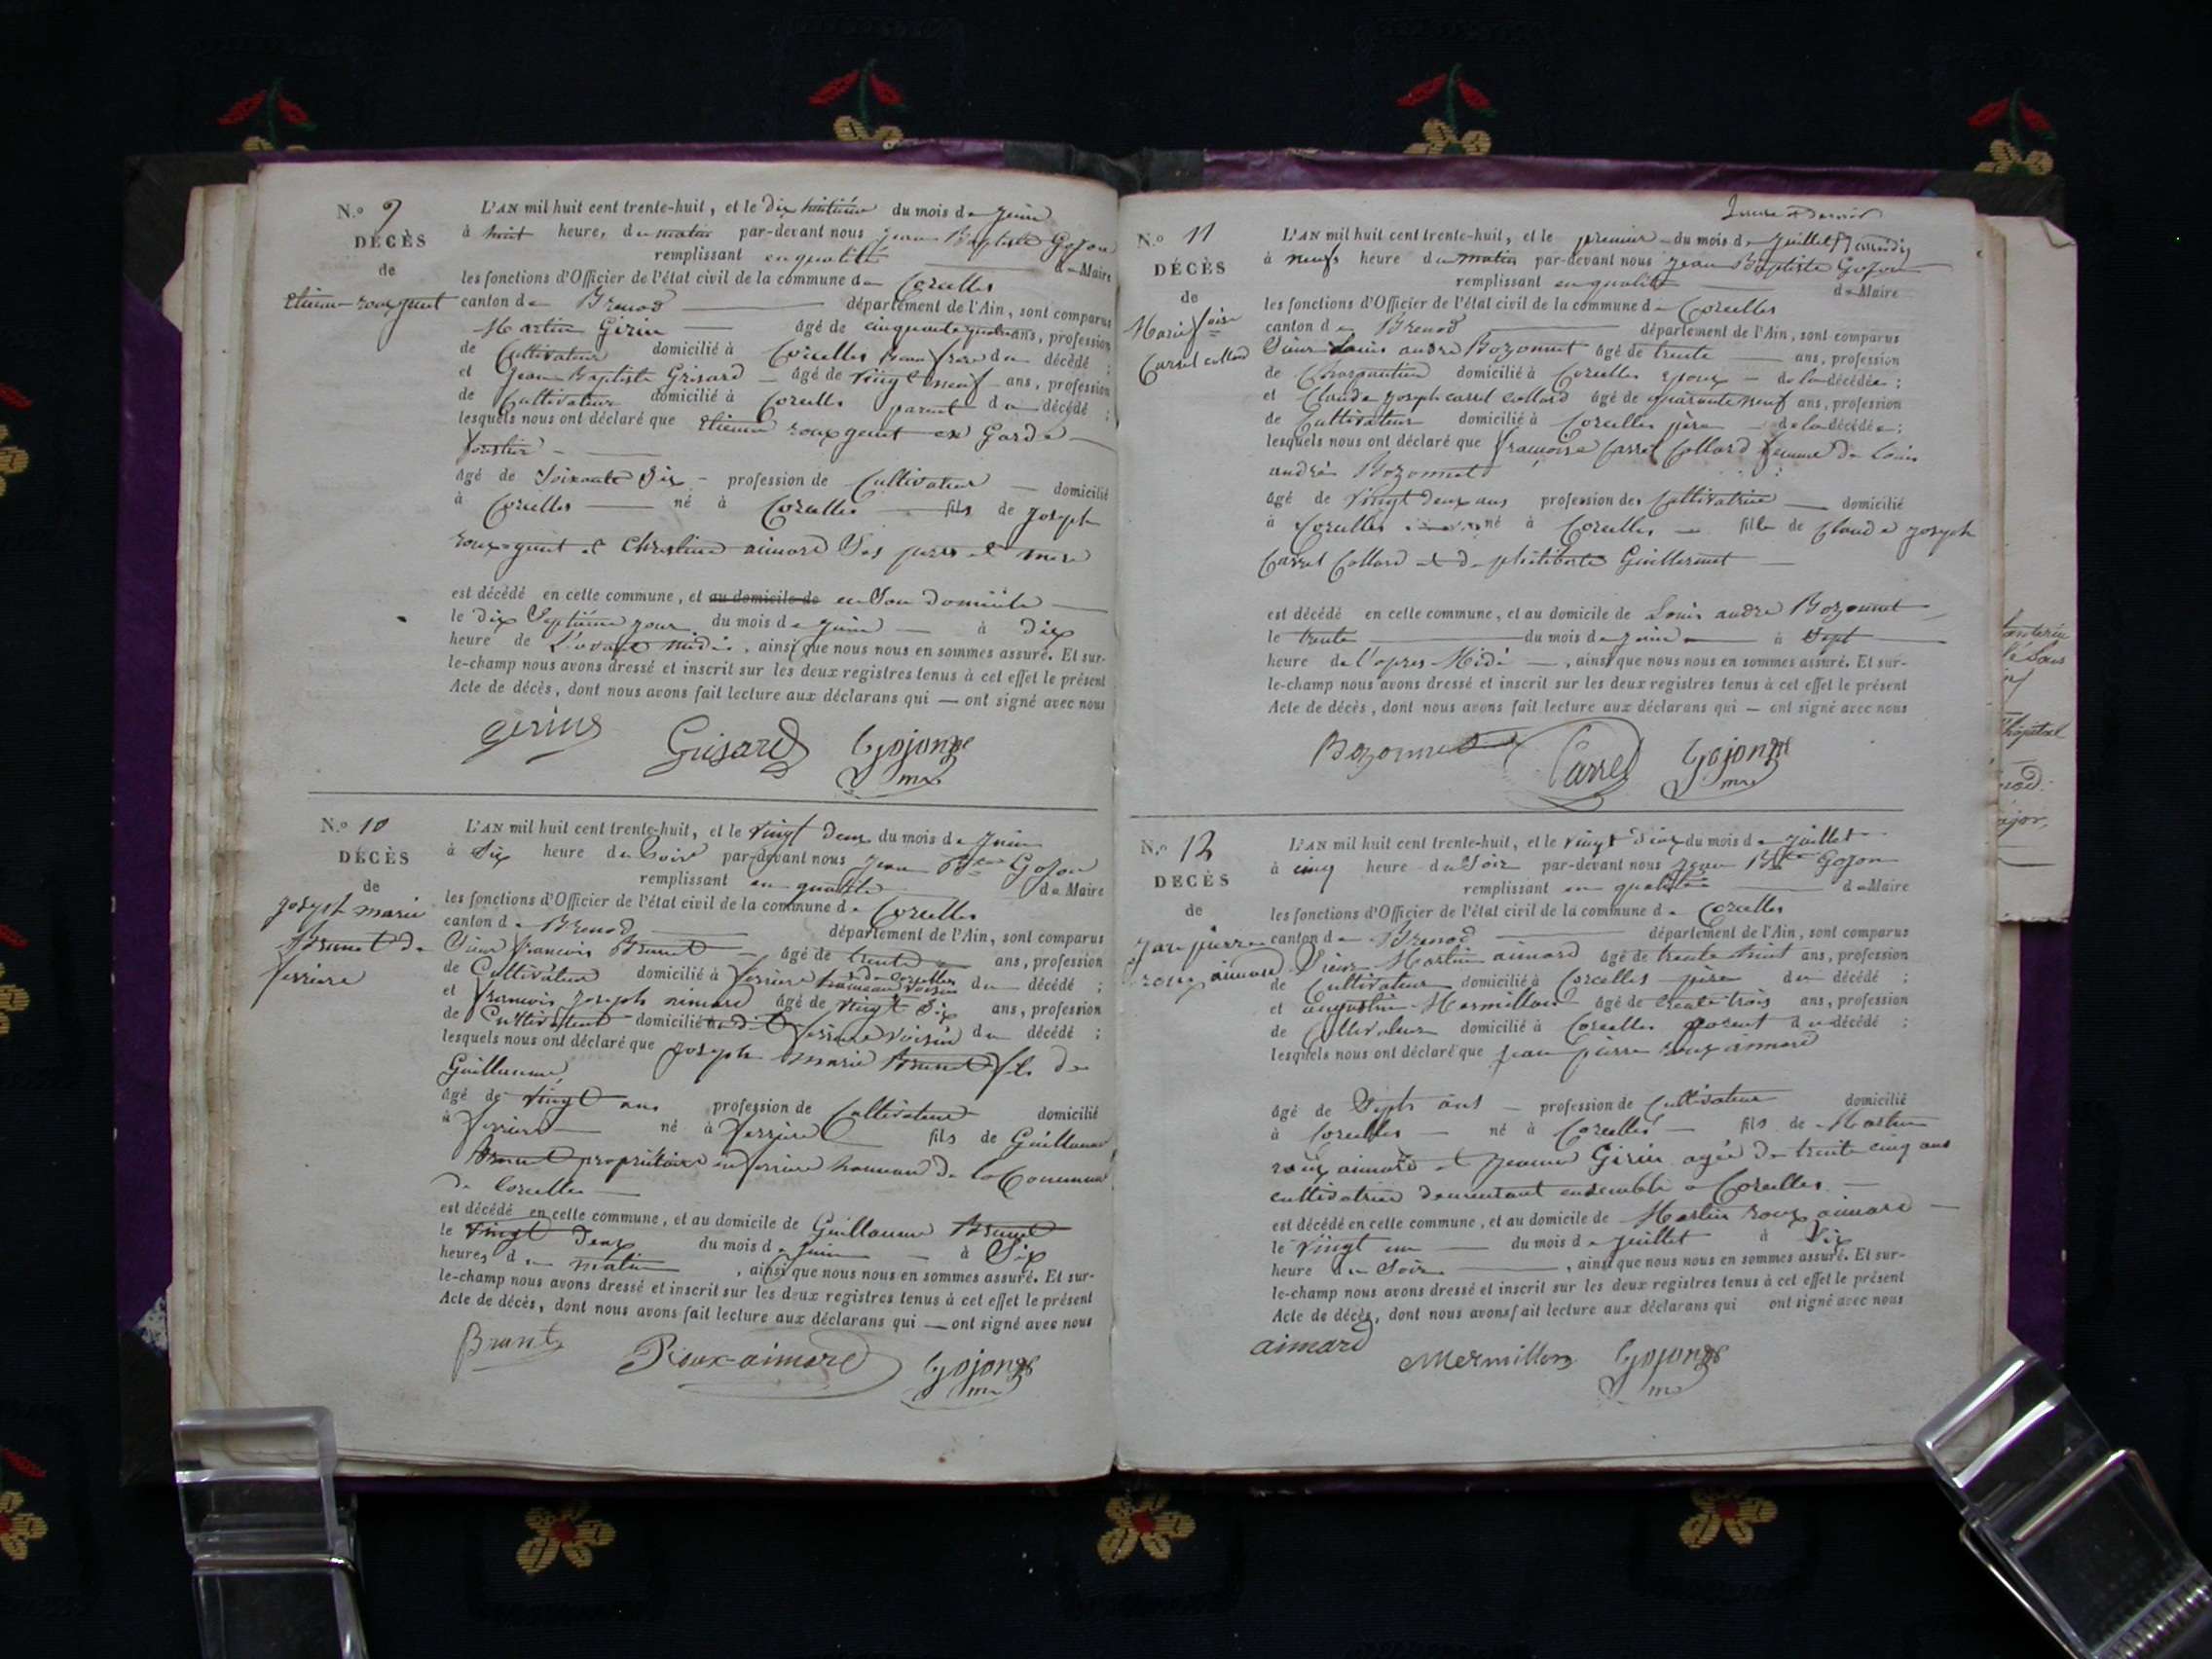 N.º 9
DÉCÈS
de
Etienne roux guut
L'AN mil huit cent trente-huit, et le dix huitième du mois de juin
à huit heure, du matin par-devant nous jean Baptiste Gojon
remplissant en qualité de Maire
les fonctions d'Officier de l'état civil de la commune de Corcelles
canton de Brenod département de l'Ain, sont comparus
Martin Girin âgé de cinquante quatre ans, profession
de Cultivateur domicilié à Corcelles beau frere du décédé ;
et jean Baptiste Grisard âgé de vingt neuf ans, profession
de Cultivateur domicilié à Corcelles parent du décédé ;
lesquels nous ont déclaré que Etienne roux ex Garde
forestier
âgé de Soixante Six profession de Cultivateur domicilié
à Corcelles né à Corcelles fils de joseph
et Christine aimard Ses pere et mere
est décédé en cette commune, et au domicile de en Son domicile
le dix Septième jour du mois de juin à dix
heure de L'avant midi, ainsi que nous nous en sommes assuré. Et sur-
le-champ nous avons dressé et inscrit sur les deux registres tenus à cet effet le présent
Acte de décès, dont nous avons fait lecture aux déclarans qui — ont signé avec nous
Grisard Gojon mre
N.º 10
DÉCÈS
de
joseph marie
Brunet de
ferriere
L'AN mil huit cent trente-huit, et le vingt deux du mois de juin
à Six heure du Soir par-devant nous jean Bte Gojon
remplissant en qualité de Maire
les fonctions d'Officier de l'état civil de la commune de Corcelles
canton de Brenod département de l'Ain, sont comparus
Sieur francois Brunet âgé de trente ans, profession
de Cultivateur domicilié à ferriere hameau de Corcelles voisin du décédé ;
et francois joseph aimard âgé de vingt Six ans, profession
de Cultivateur domicilié au dit ferriere voisin du décédé ;
lesquels nous ont déclaré que joseph marie Brunet fils de
Guillaume
âgé de vingt ans profession de Cultivateur domicilié
à ferriere né à ferriere fils de Guillaume
Brunet propriétaire en ferriere hameau de la Commune
de Corcelles
est décédé en cette commune, et au domicile de Guillaume Brunet
le vingt deux du mois de juin à Six
heures du matin, ainsi que nous nous en sommes assuré. Et sur-
le-champ nous avons dressé et inscrit sur les deux registres tenus à cet effet le présent
Acte de décès, dont nous avons fait lecture aux déclarans qui — ont signé avec nous
Roux-aimard Gojon mre
N.º 11
DÉCÈS
de
Carrel collard
L'AN mil huit cent trente-huit, et le premier du mois de juillet
à neuf heure du matin par-devant nous jean Baptiste Gojon
remplissant en qualité de Maire
les fonctions d'Officier de l'état civil de la commune de Corcelles
canton de Brenod département de l'Ain, sont comparus
Sieur Louis andré Bozonnet âgé de trente ans, profession
de Charpentier domicilié à Corcelles epoux de la décédée ;
et Claude joseph carrel collard âgé de quarante neuf ans, profession
de Cultivateur domicilié à Corcelles père de la décédée ;
lesquels nous ont déclaré que françoise Carrel Collard femme de Louis
andré Bozonnet
âgé de vingt deux ans profession de Cultivatrice domicilié
à Corcelles né à Corcelles fille de Claude joseph
Carrel Collard et de philiberte Guillermet
est décédé en cette commune, et au domicile de Louis andré Bozonnet
le trente du mois de juin à Sept
heure de l'apres Midi, ainsi que nous nous en sommes assuré. Et sur-
le-champ nous avons dressé et inscrit sur les deux registres tenus à cet effet le présent
Acte de décès, dont nous avons fait lecture aux déclarans qui — ont signé avec nous
Bozonnet Carrel Gojon mre
N.º 12
DÉCÈS
de
jean pierre
roux aimard
L'AN mil huit cent trente-huit, et le vingt deux du mois de juillet
à cinq heure du Soir par-devant nous jean Bte Gojon
remplissant en qualité de Maire
les fonctions d'Officier de l'état civil de la commune de Corcelles
canton de Brenod département de l'Ain, sont comparus
Sieur Martin aimard âgé de trente huit ans, profession
de Cultivateur domicilié à Corcelles père du décédé ;
et augustin Mermillon âgé de trente trois ans, profession
de Cultivateur domicilié à Corcelles parent du décédé ;
lesquels nous ont déclaré que jean pierre roux aimard
âgé de Sept ans profession de Cultivateur domicilié
à Corcelles né à Corcelles fils de Martin
roux aimard et jeanne Girin agée de trente cinq ans
cultivatrice demeurant ensemble a Corcelles
est décédé en cette commune, et au domicile de Martin roux aimard
le vingt un du mois de juillet à Six
heure du Soir, ainsi que nous nous en sommes assuré. Et sur-
le-champ nous avons dressé et inscrit sur les deux registres tenus à cet effet le présent
Acte de décès, dont nous avons fait lecture aux déclarans qui ont signé avec nous
aimard Mermillon Gojon mre